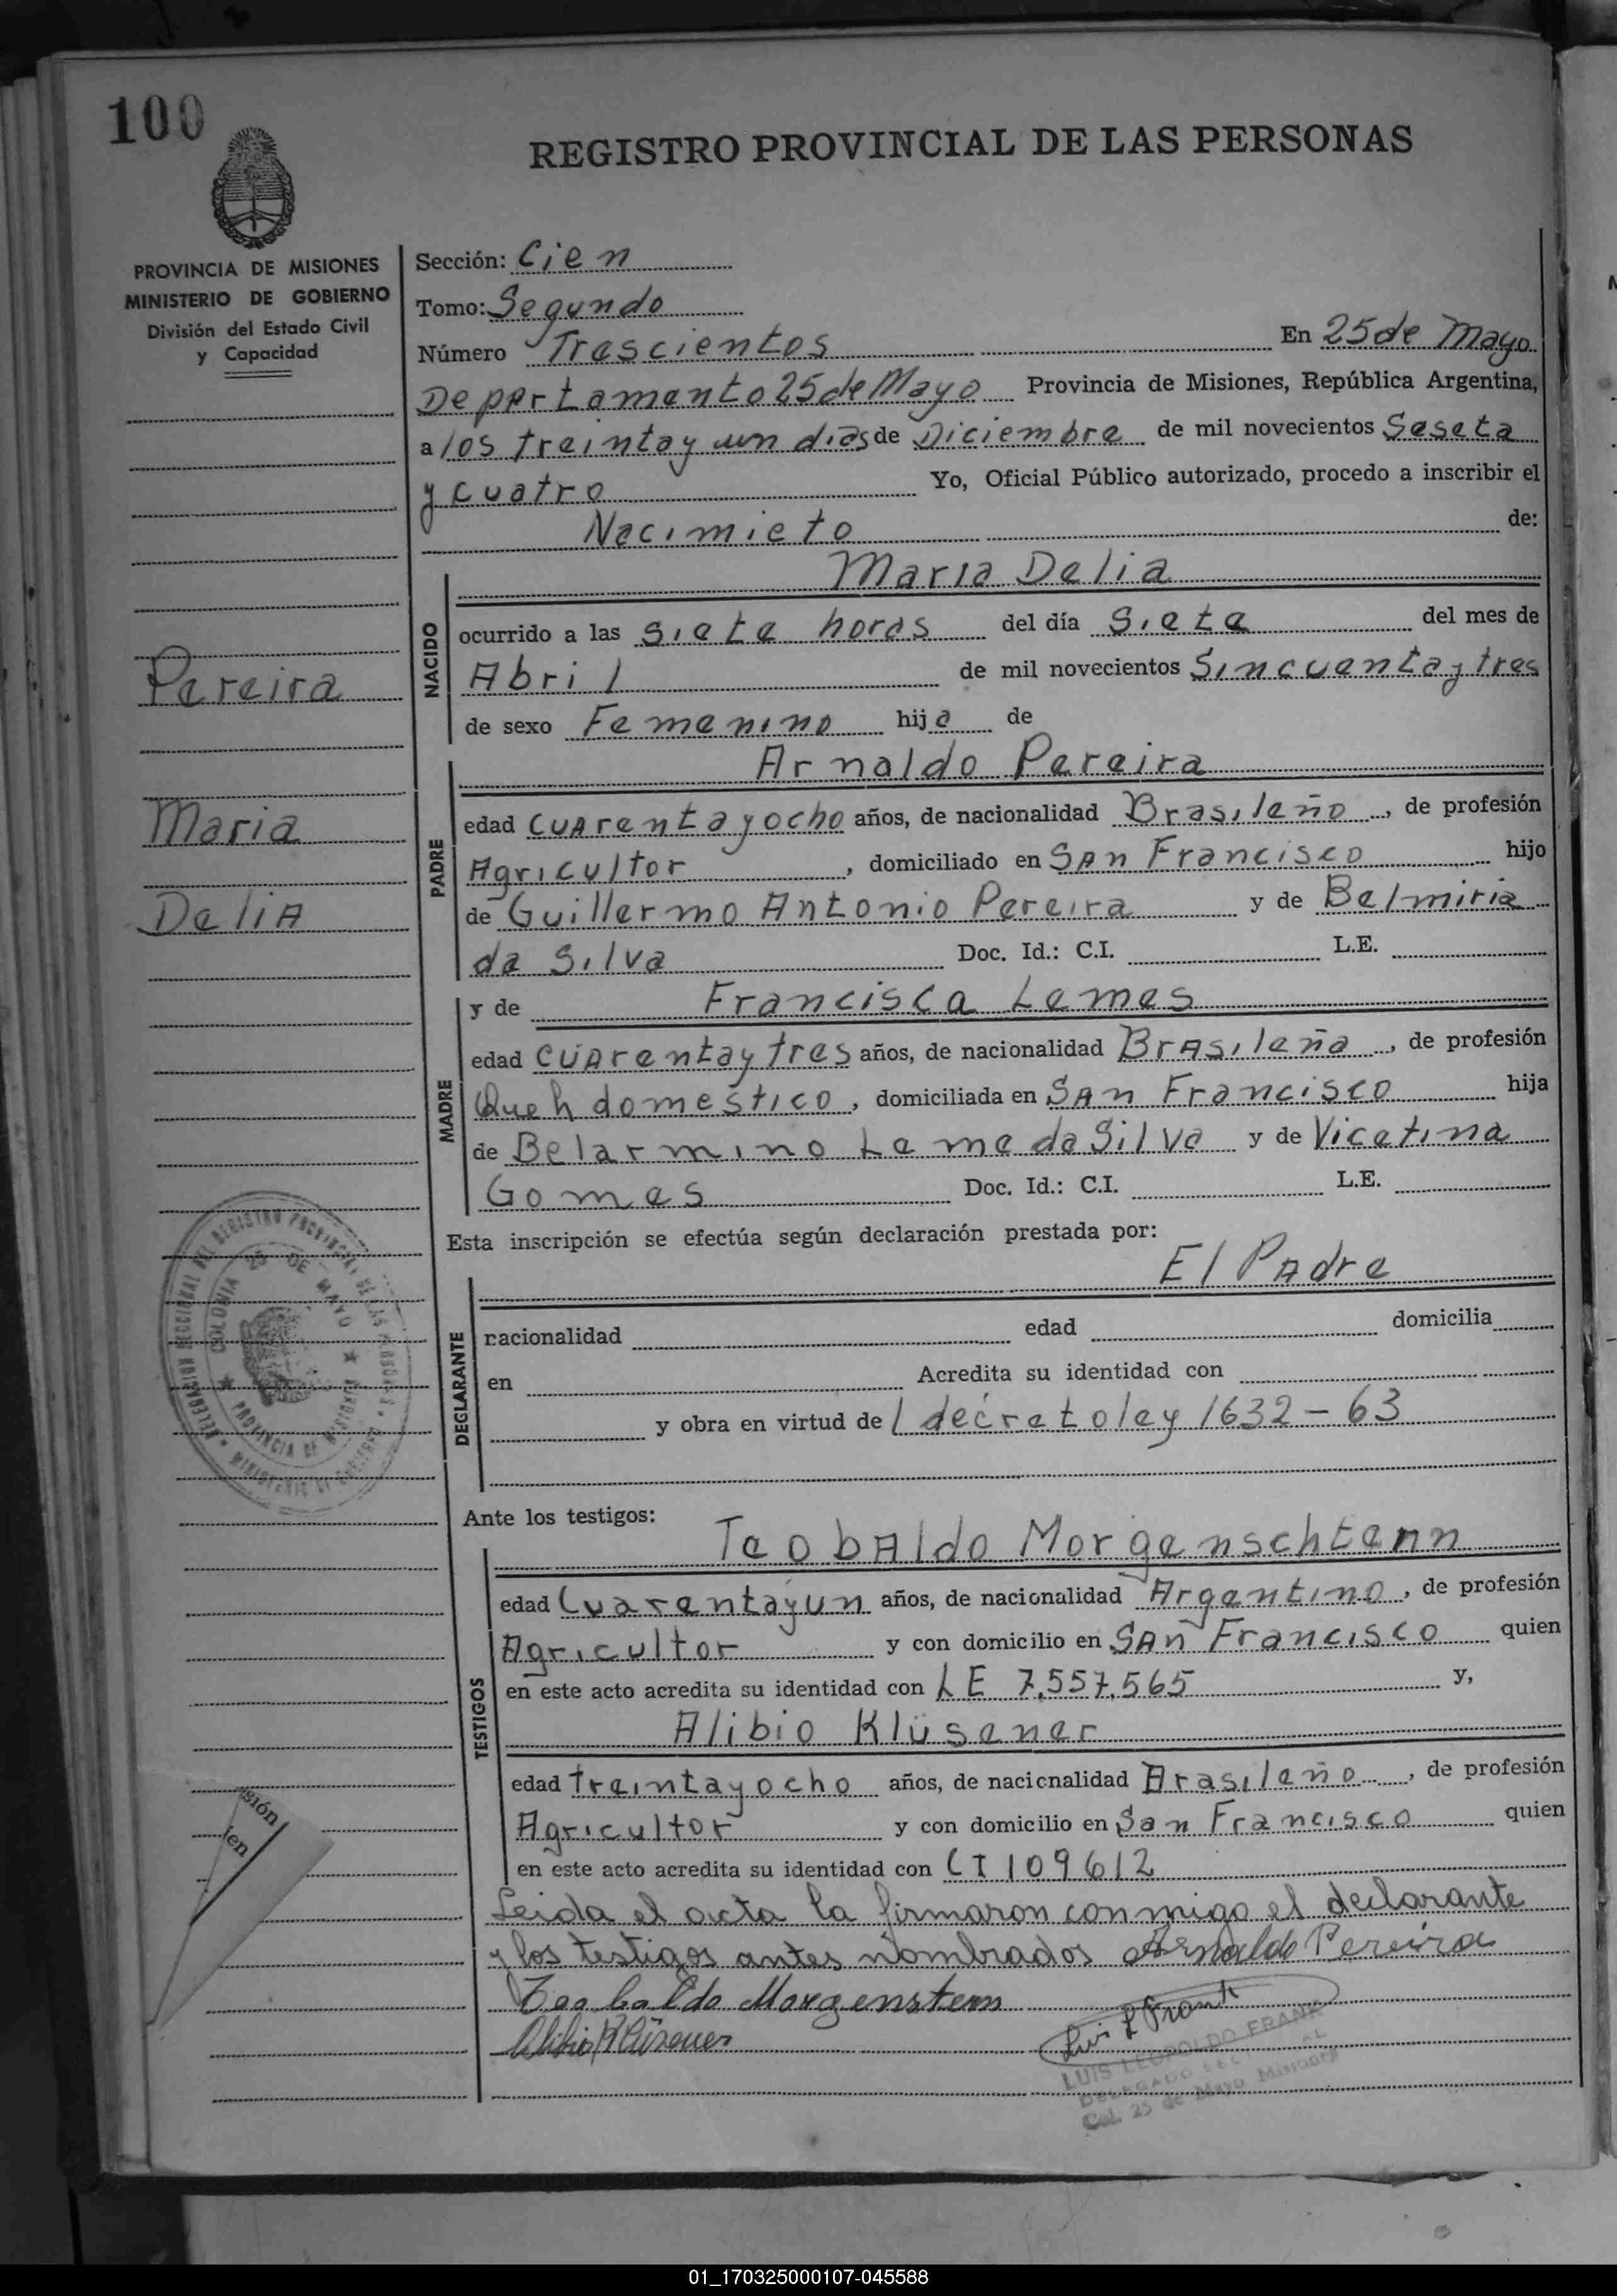 100
REGISTRO PROVINCIAL DE LAS PERSONAS
PROVINCIA DE MISIONES
MINISTERIO DE GOBIERNO
División del Estado Civil
y Capacidad
Sección: Cien
Tomo: Segundo
Número Trescientos En 25 de Mayo
Departamento 25 de Mayo Provincia de Misiones, República Argentina,
a los treinta y un dias de Diciembre de mil novecientos Seseta
y cuatro Yo, Oficial Público autorizado, procedo a inscribir el
Nacimieto de:
Maria Delia
NACIDO
ocurrido a las siete horas del día Siete del mes de
Abril de mil novecientos Sincuenta y tres
de sexo Femenino hija de
Pereira
Maria
Delia
Arnaldo Pereira
PADRE
edad cuarenta y ocho años, de nacionalidad Brasileño, de profesión
Agricultor, domiciliado en San Francisco hijo
de Guillermo Antonio Pereira y de Belmiria
da Silva Doc. Id.: C.I. L.E.
MADRE
y de Francisca Lemes
edad cuarenta y tres años, de nacionalidad Brasileña, de profesión
Queh domestico, domiciliada en San Francisco hija
de Belarmino Leme da Silva y de Vicetina
Gomes Doc. Id.: C.I. L.E.
Esta inscripción se efectúa según declaración prestada por:
El Padre
DECLARANTE
nacionalidad edad domicilia
en Acredita su identidad con
y obra en virtud del decreto ley 1632-63
DELEGACION SECCIONAL DEL REGISTRO PROVINCIAL DE LAS PERSONAS
COLONIA 25 DE MAYO
PROVINCIA DE MISIONES
MINISTERIO DE GOBIERNO
Ante los testigos:
Teobaldo Morgenschtenn
TESTIGOS
edad Cuarenta y un años, de nacionalidad Argentino, de profesión
Agricultor y con domicilio en San Francisco quien
en este acto acredita su identidad con LE 7.557.565 y,
Alibio Klüsener
edad treinta y ocho años, de nacionalidad Brasileño, de profesión
Agricultor y con domicilio en San Francisco quien
en este acto acredita su identidad con CI 109612
Leida el acta la firmaron conmigo el declarante
y los testigos antes nombrados Arnaldo Pereira
Teobaldo Morgenstern
Alibio Klüsener
Luis L Frank
LUIS LEOPOLDO FRANK
DELEGADO
Col. 25 de Mayo Misiones
sión
en
01_170325000107-045588